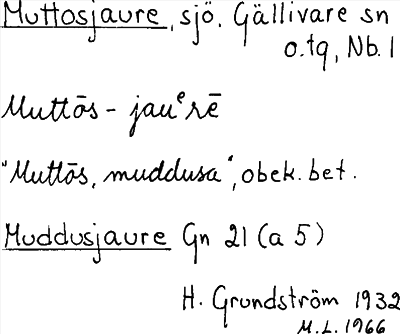 Muttosjaure, sjö. Gällivare sn
o.tg, Nb. l
Muttōs - jauᵉrē
"Muttōs, muddusa", obek. bet.
Muddusjaure Gn 21 (a 5)
H. Grundström 1932
M.L. 1966